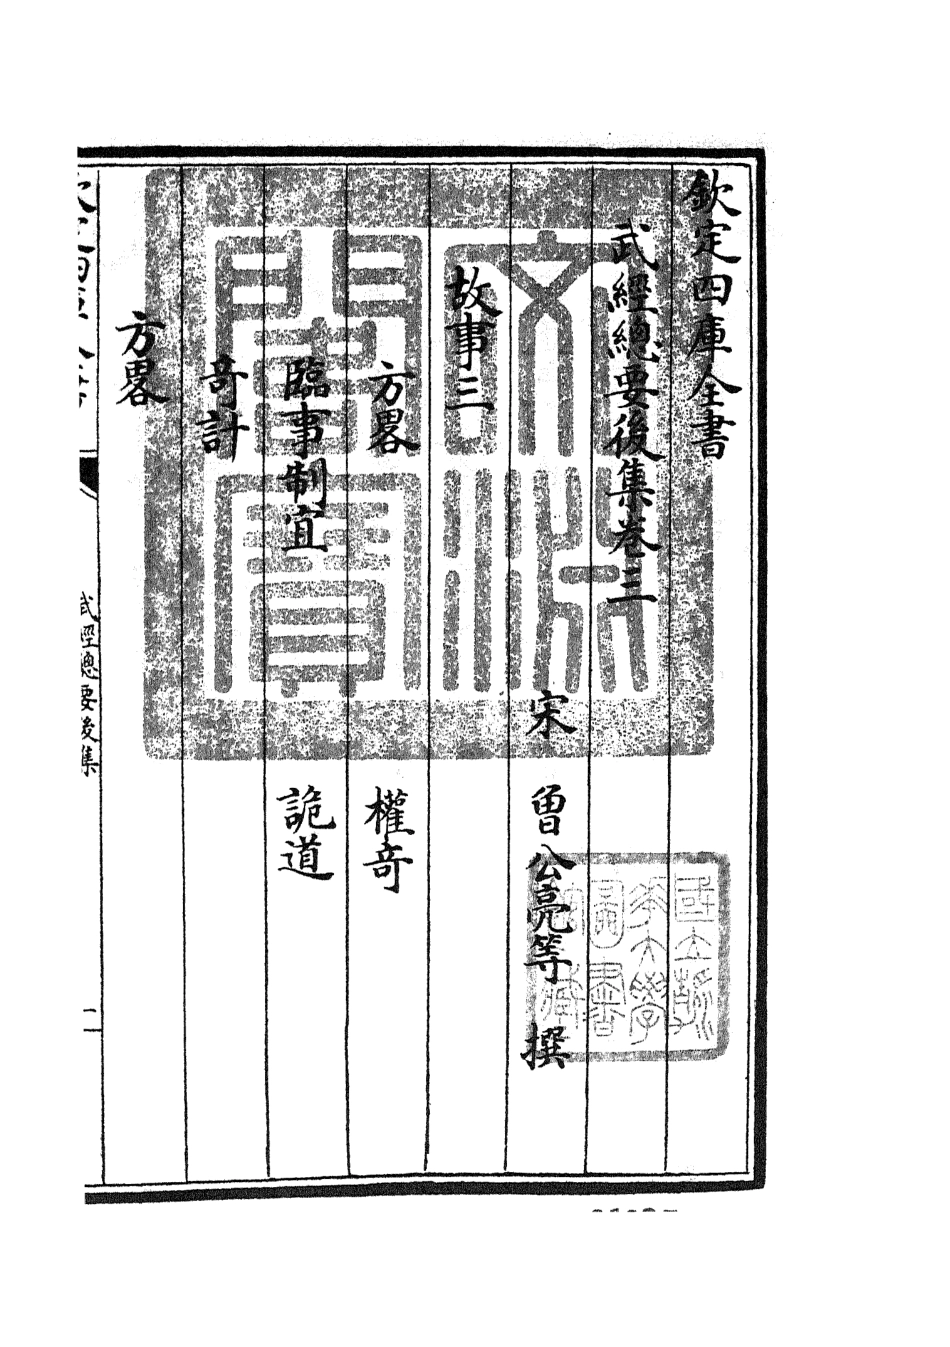 欽定四庫全書
武經總要後集卷三
宋 曾公亮等 撰
故事三
方畧 權竒
臨事制宜 詭道
竒計
方畧
武經總要後集
文淵閣寶
國立浙江大學圖書館藏